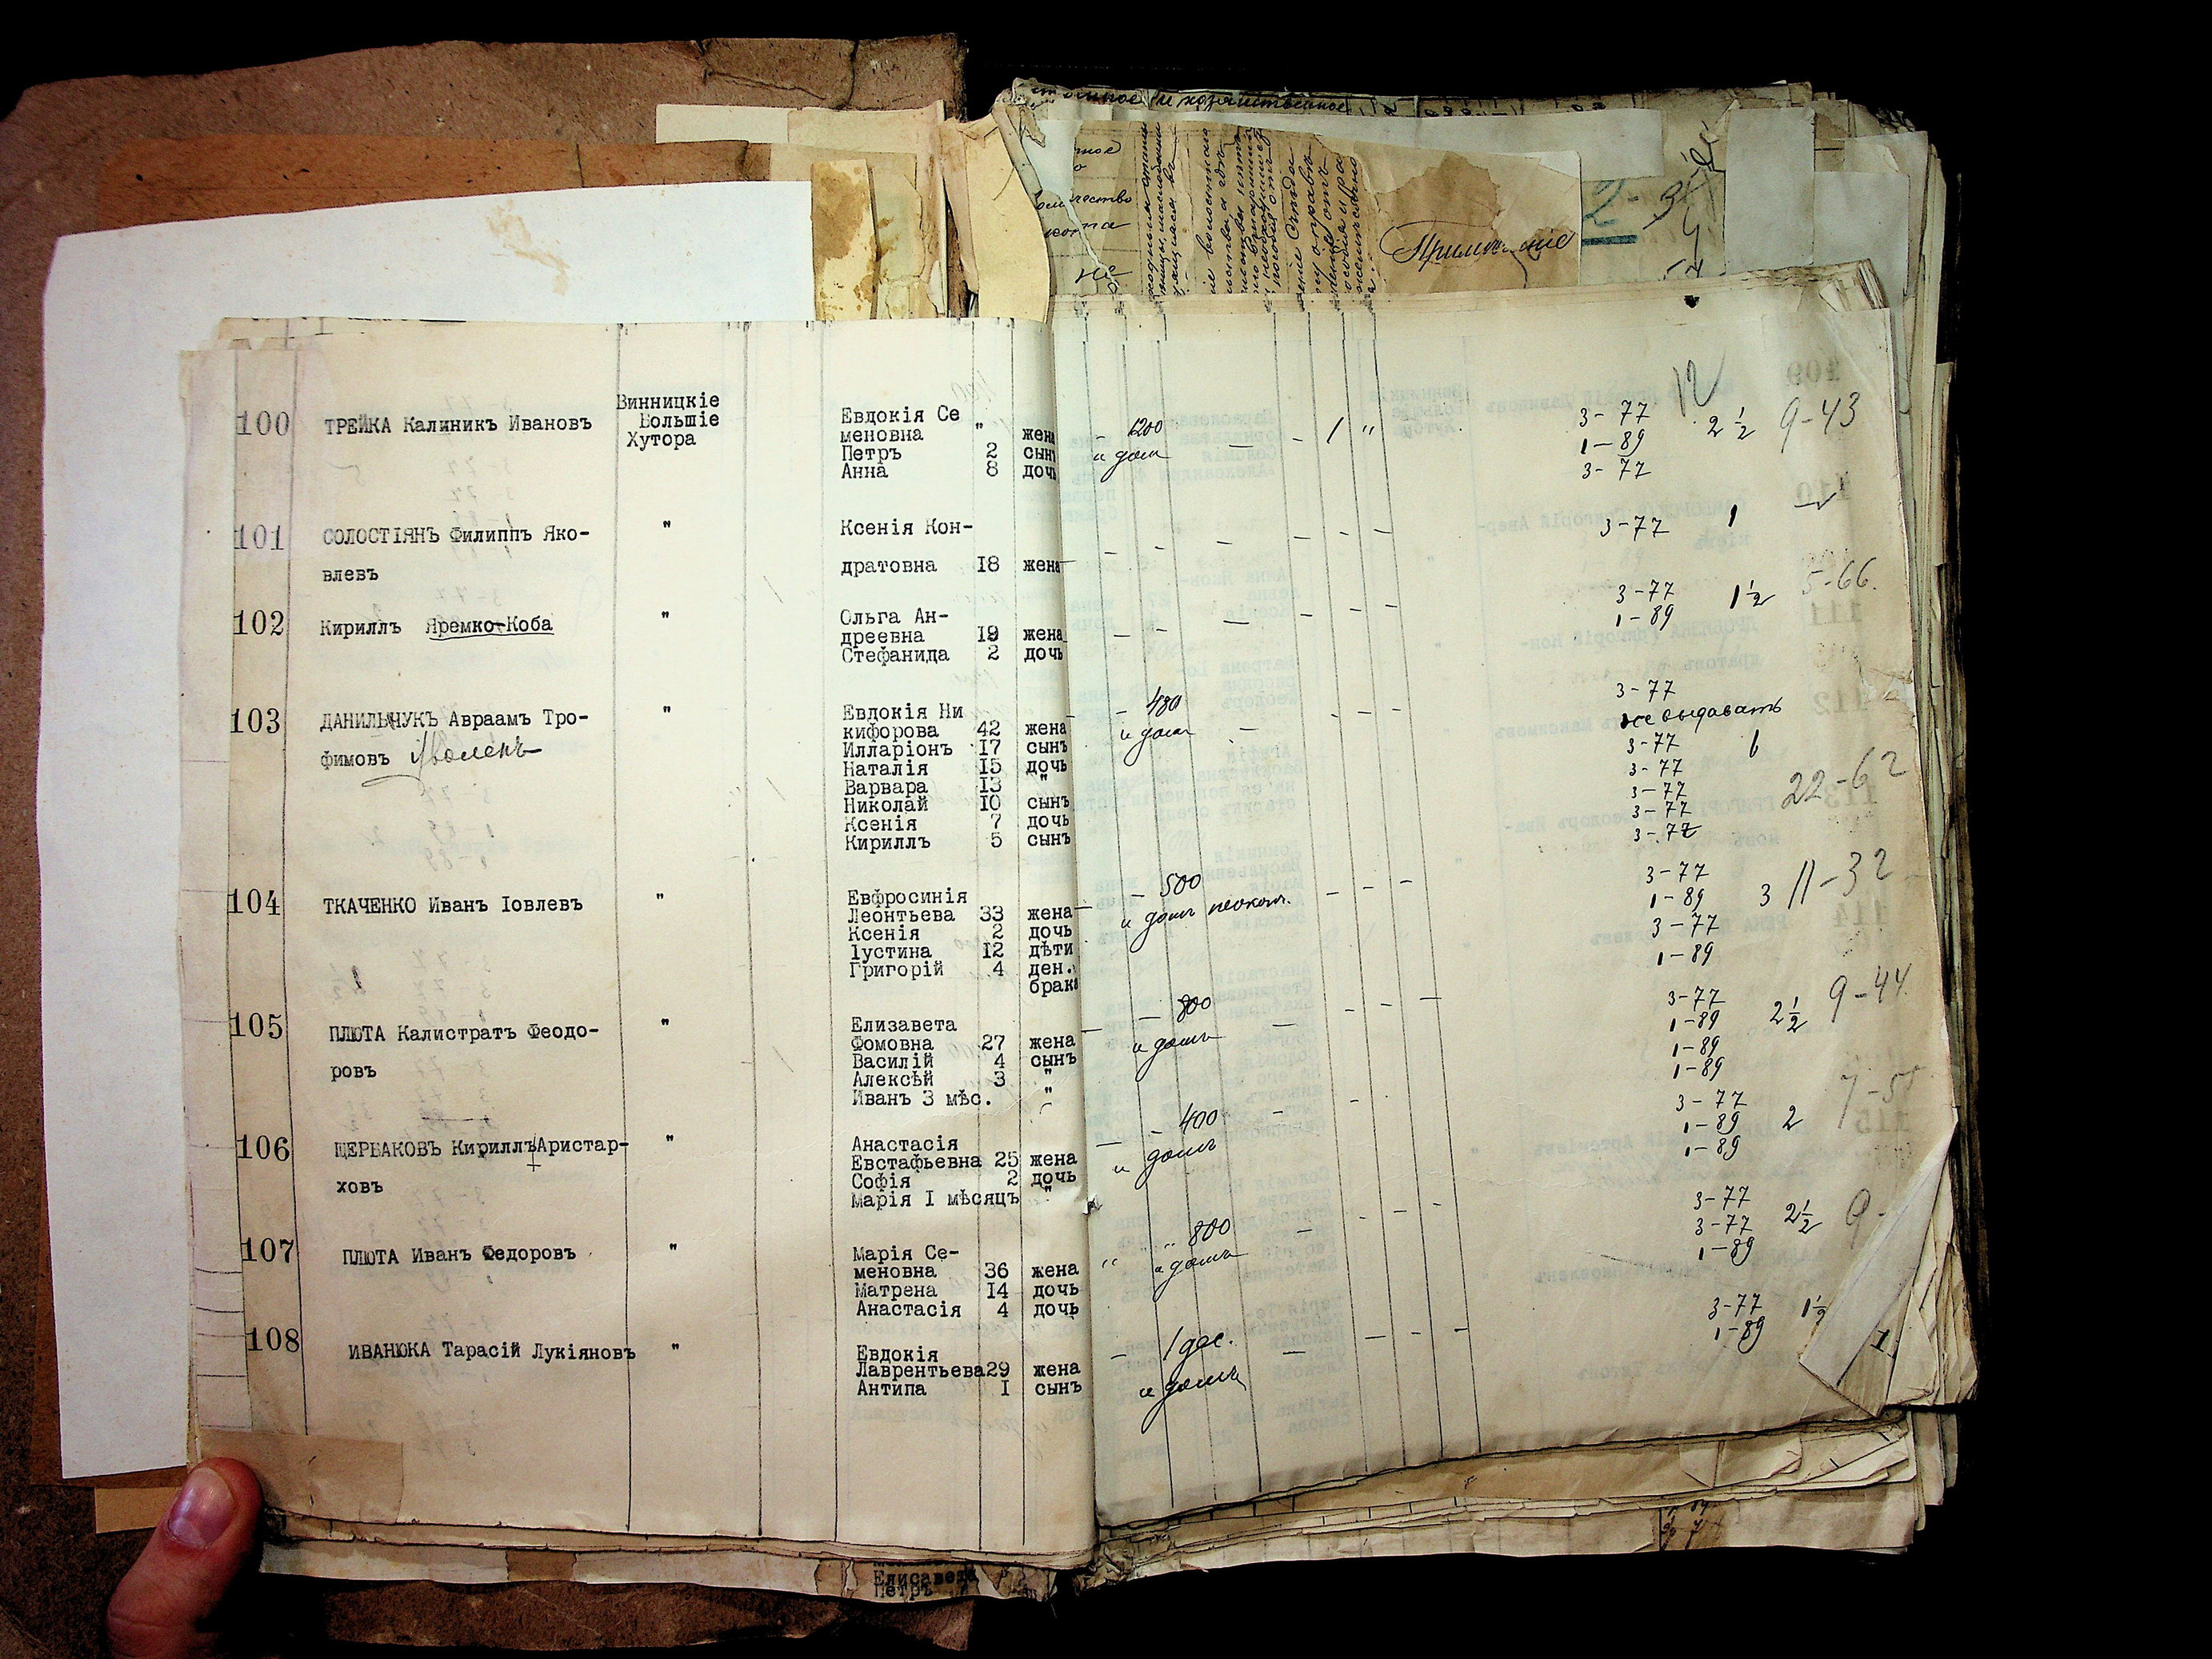 Примѣчаніе
12
100 ТРЕЙКА Калиникъ Ивановъ Винницкіе Большіе Хутора
Евдокія Се
меновна " жена - 1200 - - 1 " 3-77 2 1/2 9-43
Петръ 2 сынъ и домъ 1-89
Анна 8 дочь 3-77
101 СОЛОСТІЯНЪ Филиппъ Яко- " Ксенія Кон- - - - - - - 3-77 1
влевъ дратовна 18 жена
102 Кирилль Яремко-Коба " Ольга Ан- - - - - - - 3-77 1 1/2 5-66.
дреевна 19 жена 1-89
Стефанида 2 дочь
103 ДАНИЛЬЧУКЪ Авраамъ Тро- " Евдокія Ни - 480 - - - - 3-77
кифорова 42 жена и домъ не выдавать
фимовъ Уволенъ Илларіонъ 17 сынъ 3-77 1
Наталія 15 дочь 3-77
Варвара 13 " 3-77 22-62
Николай 10 сынъ 3-77
Ксенія 7 дочь 3-77
Кириллъ 5 сынъ
104 ТКАЧЕНКО Иванъ Іовлевъ " Евфросинія - 500 - - - 3-77
Леонтьева 33 жена и домъ неокон. 1-89 3 11-32
Ксенія 2 дочь 3-77
Іустина 12 дѣти 1-89
Григорій 4 ден.
брака
105 ПЛЮТА Калистратъ Феодо- " Елизавета - 800 - - - - 3-77 2 1/2 9-44
Фомовна 27 жена и домъ 1-89
ровъ Василій 4 сынъ 1-89
Алексѣй 3 " 1-89
Иванъ 3 мѣс. "
106 ЩЕРБАКОВЪ КириллъАристар- " Анастасія - 400 - - 3-77
Евстафьевна 25 жена и домъ 1-89 2
ховъ Софія 2 дочь 1-89
Марія I мѣсяцъ "
107 ПЛЮТА Иванъ Федоровъ " Марія Се- " " 800 - - - - 3-77
меновна 36 жена и домъ 3-77 2 1/2 9-
Матрена 14 дочь 1-89
Анастасія 4 дочь
108 ИВАНЮКА Тарасій Лукіяновъ " Евдокія - 1 дес. - - - - 3-77 1 1/2
Лаврентьева29 жена и домъ 1-89
Антипа I сынъ
Елисавета
Петръ